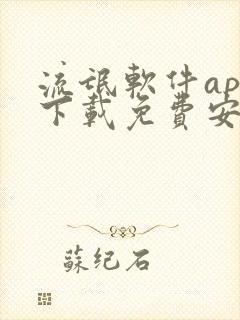 流氓軟件ap
下載免費安
蘇紀石